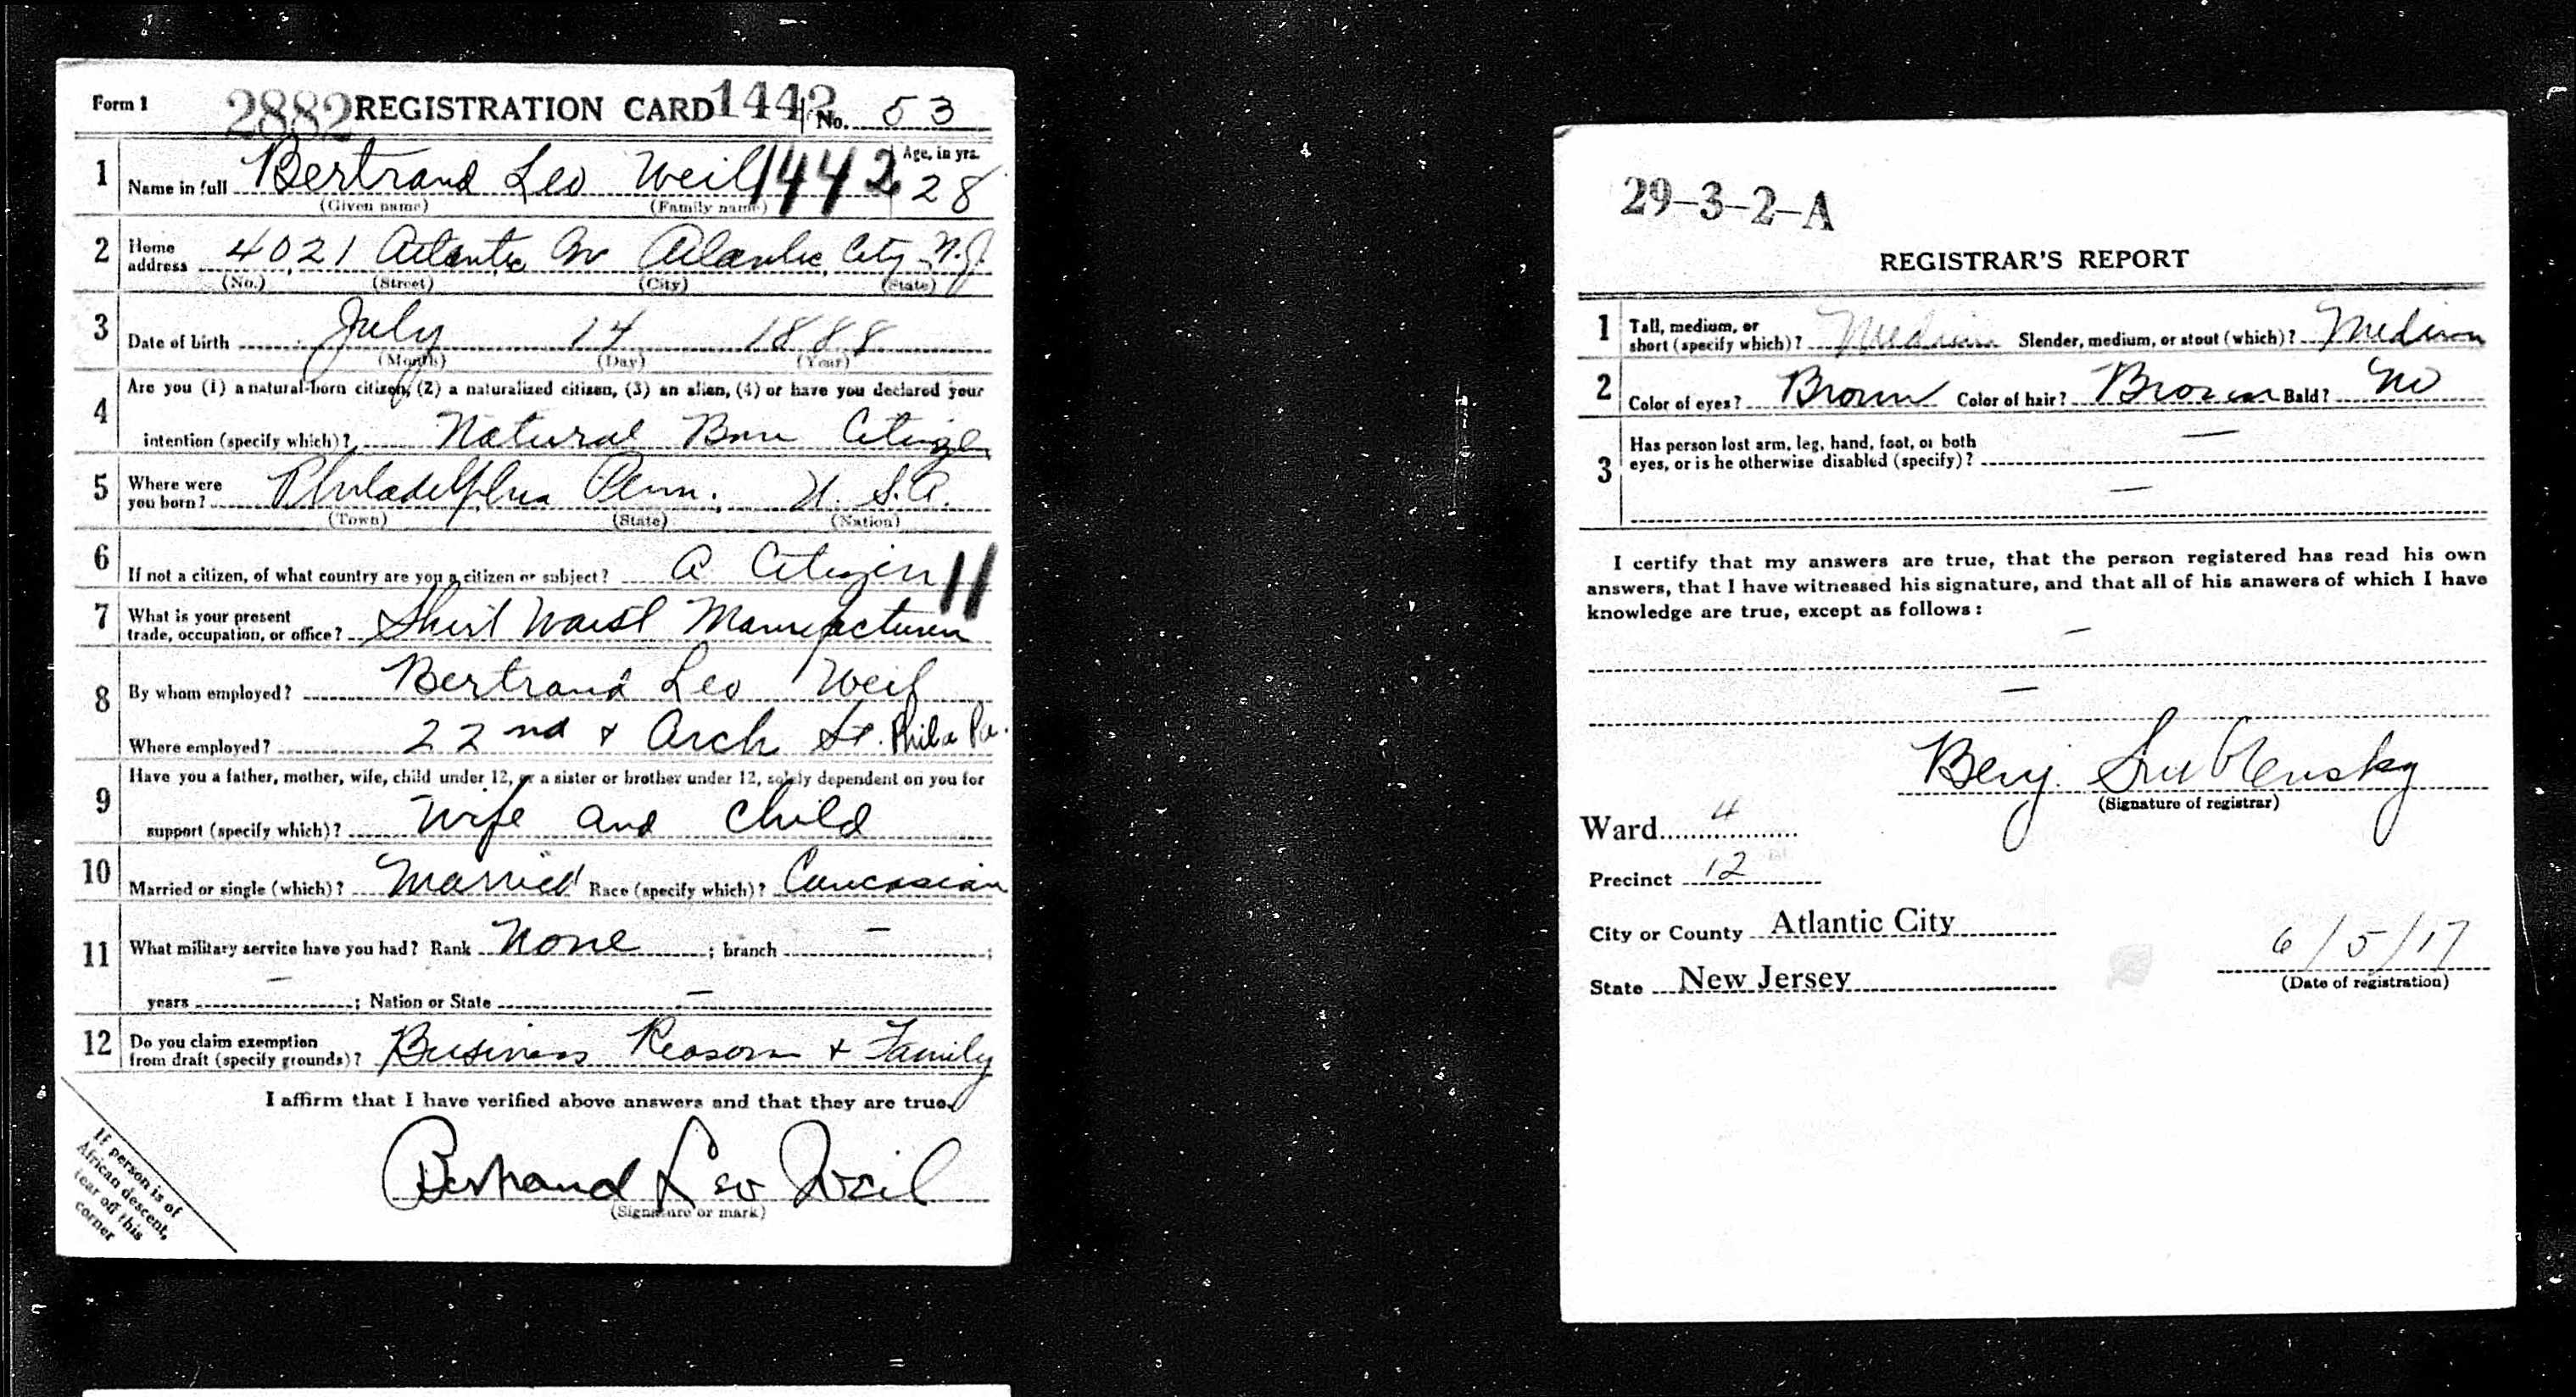 Form 1 2882 REGISTRATION CARD 1442 No. 53
1 Name in full Bertrand Leo Weil 1442 Age, in yrs. 28
(Given name) (Family name)
2 Home address 4021 Atlantic Av Atlantic City N.J.
(No.) (Street) (City) (State)
3 Date of birth July 14 1888
(Month) (Day) (Year)
4 Are you (1) a natural-born citizen, (2) a naturalized citizen, (3) an alien, (4) or have you declared your
intention (specify which)? Natural Born Citizen
5 Where were you born? Philadelphia Penn. U.S.A.
(Town) (State) (Nation)
6 If not a citizen, of what country are you a citizen or subject? A Citizen 11
7 What is your present trade, occupation, or office? Shirt Waist Manufacturer
8 By whom employed? Bertrand Leo Weil
Where employed? 22nd & Arch St. Phila Pa.
9 Have you a father, mother, wife, child under 12, or a sister or brother under 12, solely dependent on you for
support (specify which)? Wife and Child
10 Married or single (which)? Married Race (specify which)? Caucasian
11 What military service have you had? Rank None ; branch — ;
years — ; Nation or State —
12 Do you claim exemption from draft (specify grounds)? Business Reasons & Family
I affirm that I have verified above answers and that they are true.
Bertrand Leo Weil
(Signature or mark)
If person is of
African descent,
tear off this
corner
29-3-2-A
REGISTRAR'S REPORT
1 Tall, medium, or short (specify which)? Medium Slender, medium, or stout (which)? Medium
2 Color of eyes? Brown Color of hair? Brown Bald? No
3 Has person lost arm, leg, hand, foot, or both —
eyes, or is he otherwise disabled (specify)?
—
I certify that my answers are true, that the person registered has read his own
answers, that I have witnessed his signature, and that all of his answers of which I have
knowledge are true, except as follows:
—
—
Benj.
(Signature of registrar)
Ward 4
Precinct 12
City or County Atlantic City
State New Jersey
6/5/17
(Date of registration)